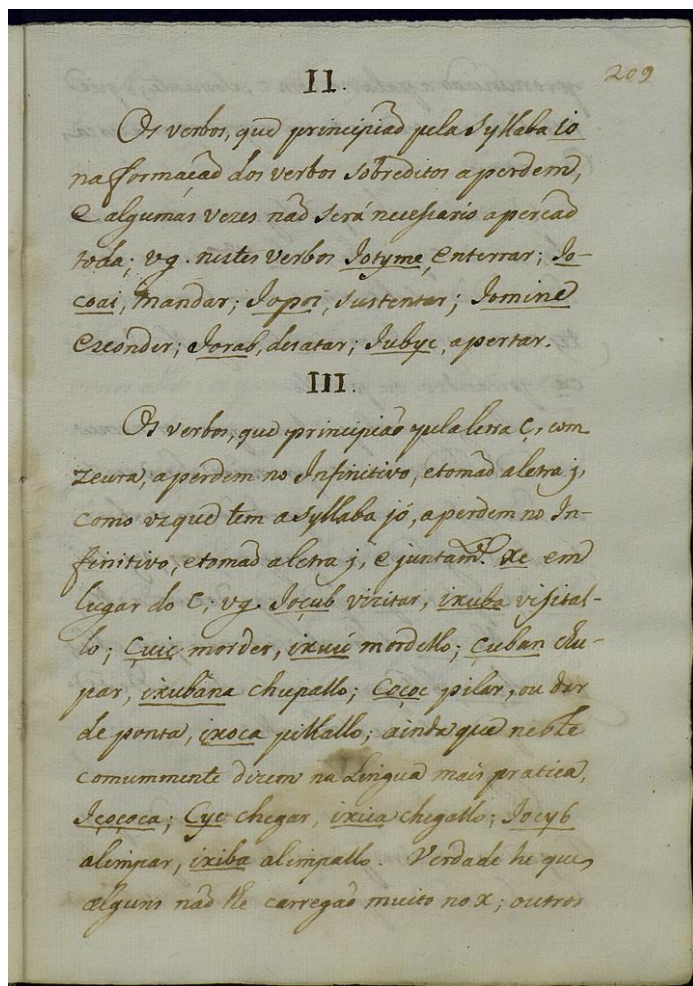 209
II.
Os verbos, que principiaõ pela Syllaba io
na formaçaõ dos verbos sobreditos a perdem,
e algumas vezes naõ será necessario aperçaõ
toda; vg. nestes verbos Jotyme, enterrar; Jo-
coai, mandar; Jopoi, sustentar; Jomime
esconder; Jorab, desatar; Jubyc, apertar.
III.
Os verbos, que principiaõ pela letra Ç, com
zeura, a perdem no Infinitivo, e tomaõ a letra j,
como os que tem a Syllaba jó, a perdem no In-
finitivo, e tomaõ a letra j, e juntam.te xe em
lugar do C; vg. Joçub vizitar, ixuba visital-
lo; Çuú morder, ixuú mordello; Çuban chu-
par, ixubana chupallo; Çoçoc pilar, ou dar
de ponta, ixoca pillallo; ainda que neste
comummente dizem na Lingua mais pratica,
Jçoçoca; Cyc chegar, ixica chegallo; Jocyb
alimpar, ixiba alimpallo. Verdade he que
alguns naõ lhe carregaõ muito no x; outros